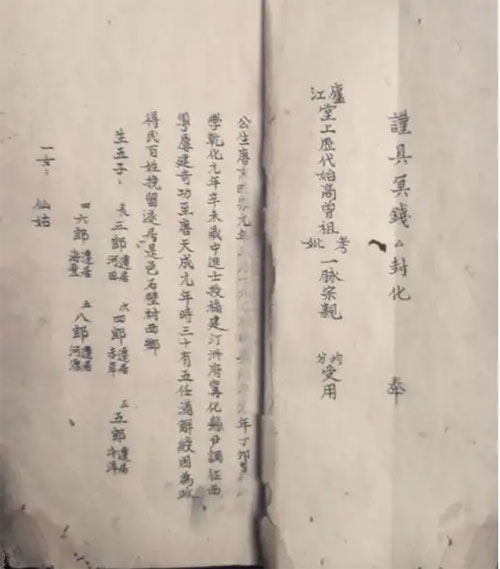 謹具冥錢么封化 奉
廬江堂上歷代始高曾祖考妣一脉宗親 均分受用
公生唐 元年 年丁卯
學乾化元年辛未歲中進士授福建汀洲府寧化縣尹調征西
學屢建奇功至唐天成元年時三十有五任滿解綬因為政
得民百姓挽留遂居是邑石壁村西鄉
生五子：長三郎遷居河田 次四郎遷居 三五郎遷居
四六郎遷居 五八郎遷居河源
一女：仙姑